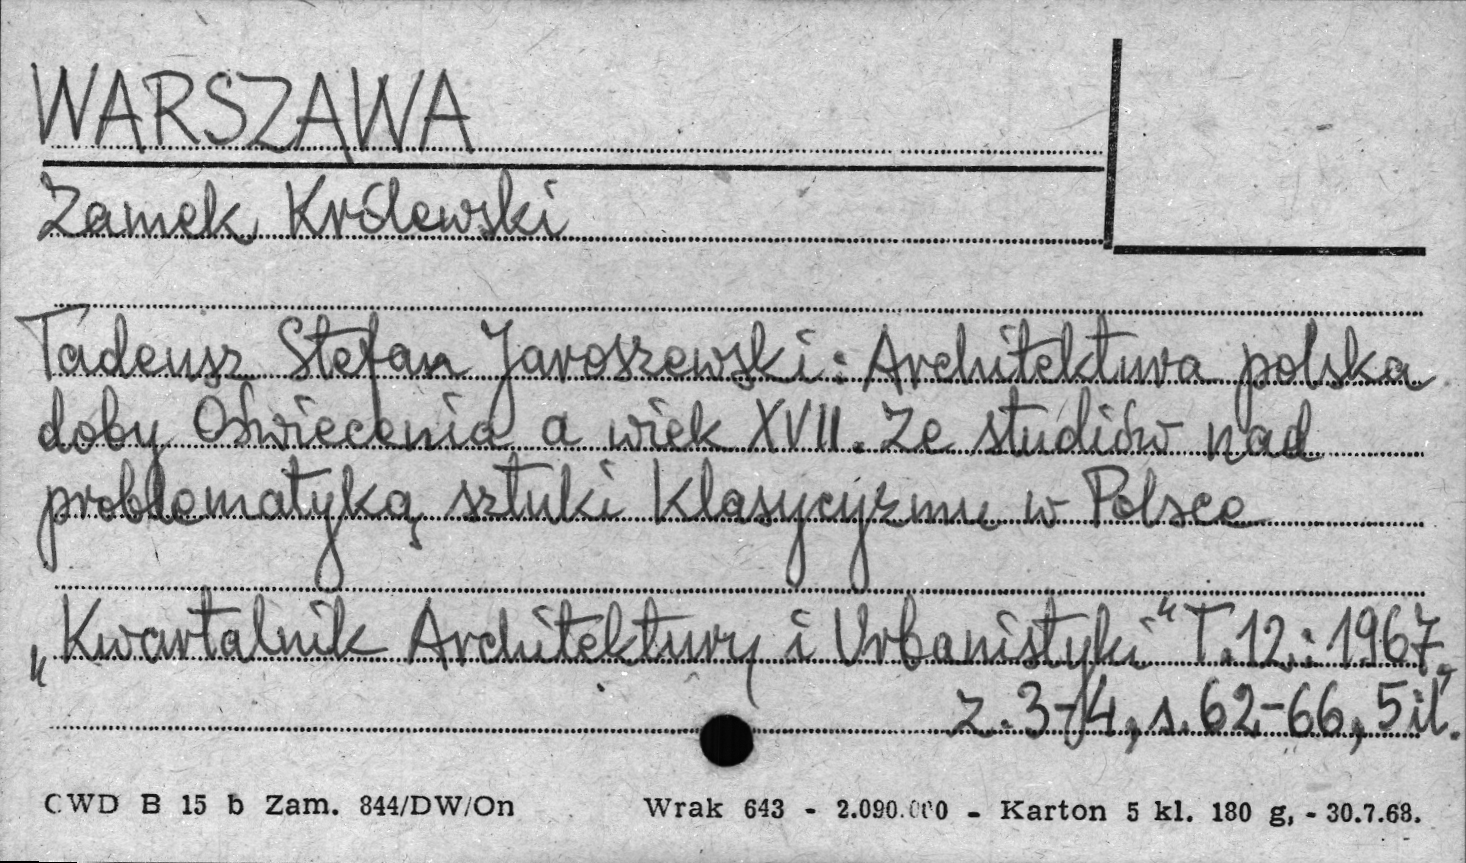 WARSZAWA
Zamek Królewski
Tadeusz Stefan Jaroszewski: Architektura polska
doby Oświecenia a wiek XVII. Ze studiów nad
problematyką sztuki klasycyzmu w Polsce
„Kwartalnik Architektury i Urbanistyki" T.12.: 1967.
z. 3-4, s. 62-66, 5 il.
CWD B 15 b Zam. 844/DW/On Wrak 643 - 2.090.000 - Karton 5 kl. 180 g, - 30.7.68.